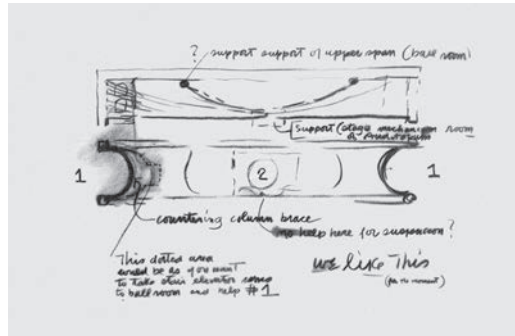 ? support support of upper span (ball room)
support (stage mechanism room
& Auditorium
1
2
1
countering column brace
no help here for suspension?
This dotted area
would be as if you want
to take stair elevator
to ball room and help #1
we like This
(for the moment)